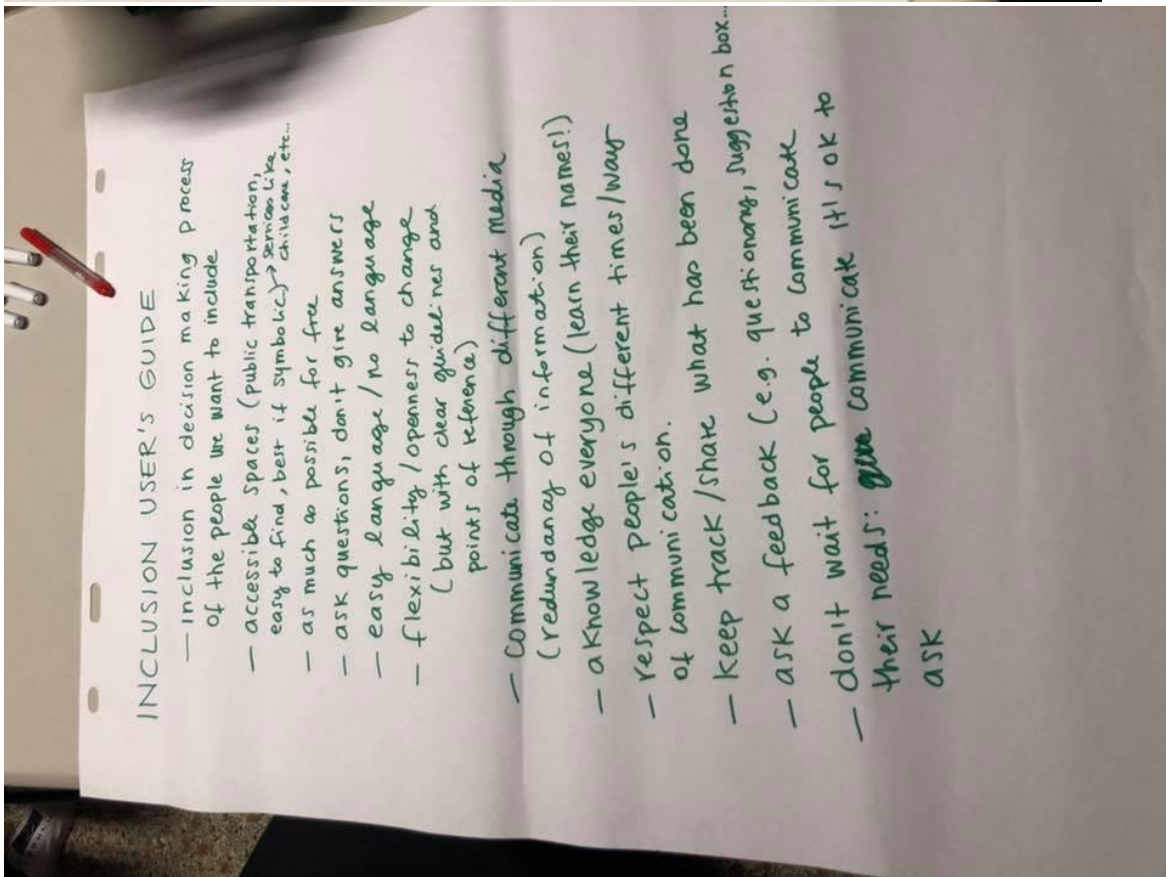 INCLUSION USER'S GUIDE
— inclusion in decision making process
of the people we want to include
— accessible spaces (public transportation,
easy to find, best if symbolic) → services like
childcare, etc...
— as much as possible for free
— ask questions, don't give answers
— easy language / no language
— flexibility / openness to change
(but with clear guidelines and
points of reference)
— communicate through different media
(redundancy of information)
— aknowledge everyone (learn their names!)
— respect people's different times/way
of communication.
— keep track/share what has been done
— ask a feedback (e.g. questionary, suggestion box...
— don't wait for people to communicate
their needs: communicate it's ok to
ask